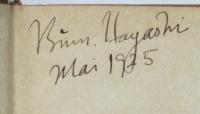 Bün. Hayashi
Mai 1925